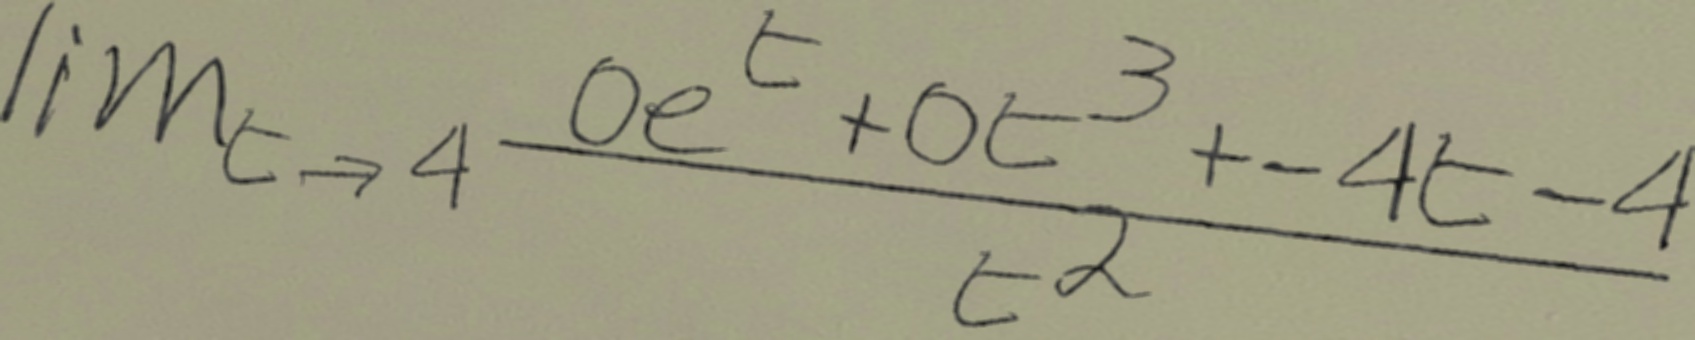 lim_{t \to 4} \frac{0e^t + 0t^3 + -4t - 4}{t^2}